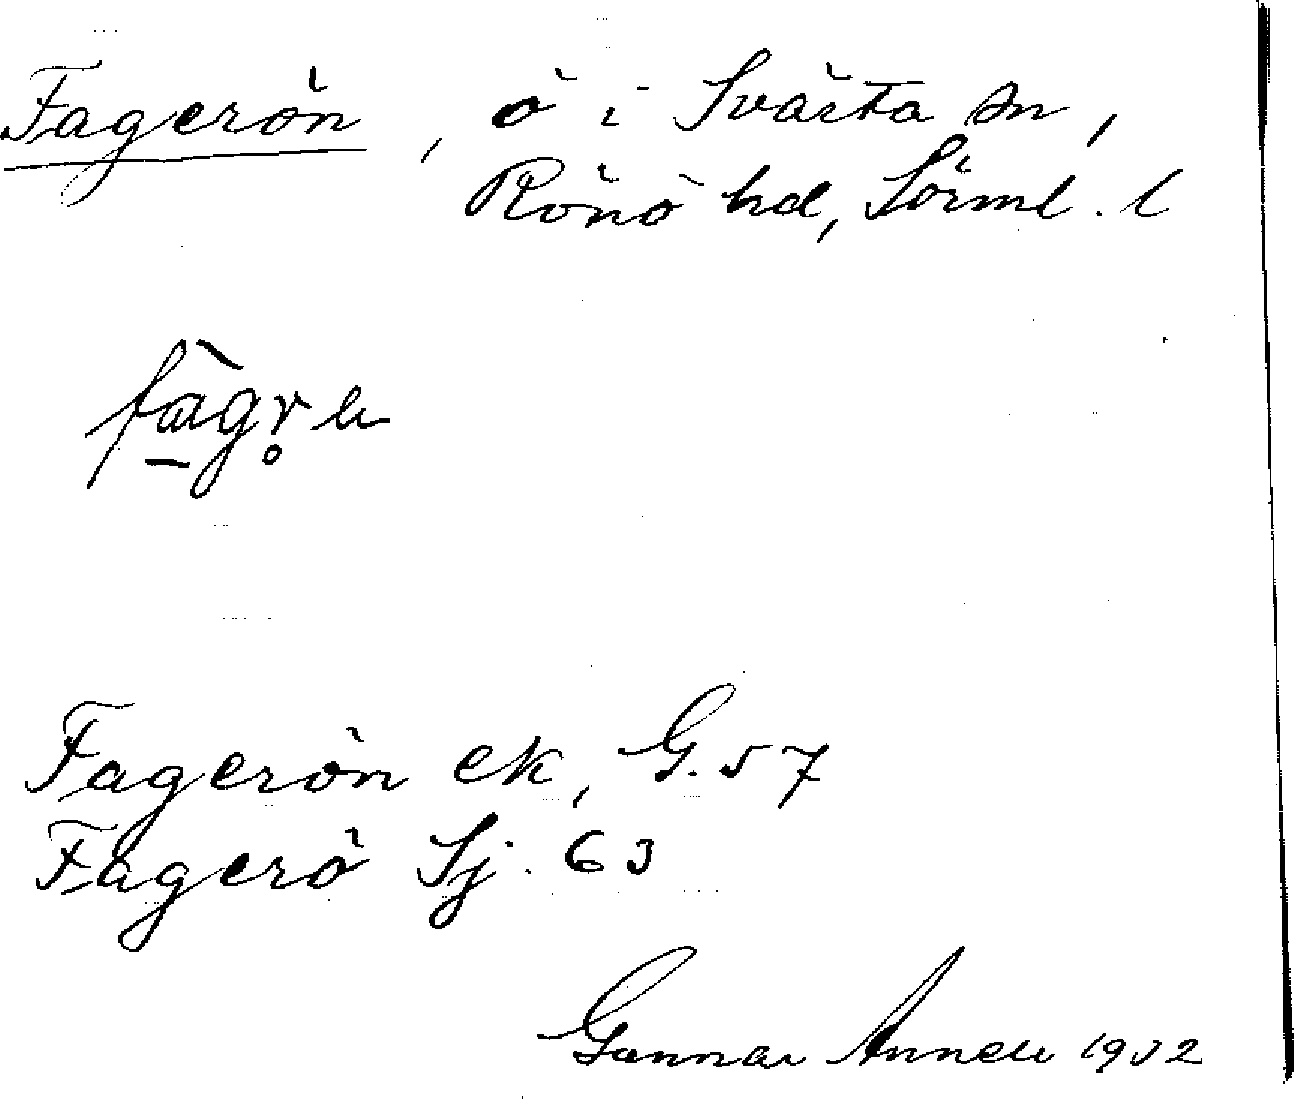 Fagerön, ö i Svärta sn,
Rönö hd, Sörml. l
Fagerön ek, G. 57
Fagerö Sj. 63
Gunnar Annell 1932